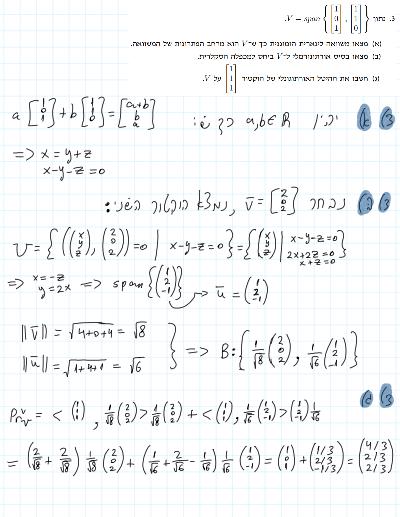 3. נתון V = span { [1 0 1], [1 1 0] }.
(א) מצאו משוואה לינארית הומוגנית כך ש־V הוא מרחב הפתרונות של המשוואה.
(ב) מצאו בסיס אורתונורמלי ל־V ביחס למכפלה הסקלרית.
(ג) חשבו את ההיטל האורתוגונלי של הווקטור [1 1 1] על V.
3) א) יהיו a,b∈ℝ כך ש:
a [1 0 1] + b [1 1 0] = [a+b b a]
=> x = y+z
x-y-z=0
3) ב) נבחר v̄ = [2 0 2], נמצא הווקטור השני:
U = { ((x y z), (2 0 2)) = 0 | x-y-z=0 } = { (x y z) | x-y-z=0 2x+2z=0 x+z=0 }
=> x=-z y=2x => span { (1 2 -1) } → ū = (1 2 -1)
‖v̄‖ = √(4+0+4) = √8
‖ū‖ = √(1+4+1) = √6
=> B: { 1/√8 (2 0 2), 1/√6 (1 2 -1) }
3)
Pr_v = < (1 1 1), 1/√8 (2 0 2) > 1/√8 (2 0 2) + < (1 1 1), 1/√6 (1 2 -1) > (1 2 -1) 1/√6
= (2/√8 + 2/√8) 1/√8 (2 0 2) + (1/√6 + 2/√6 - 1/√6) 1/√6 (1 2 -1) = (1 0 1) + (1/3 2/3 -1/3) = (4/3 2/3 2/3)